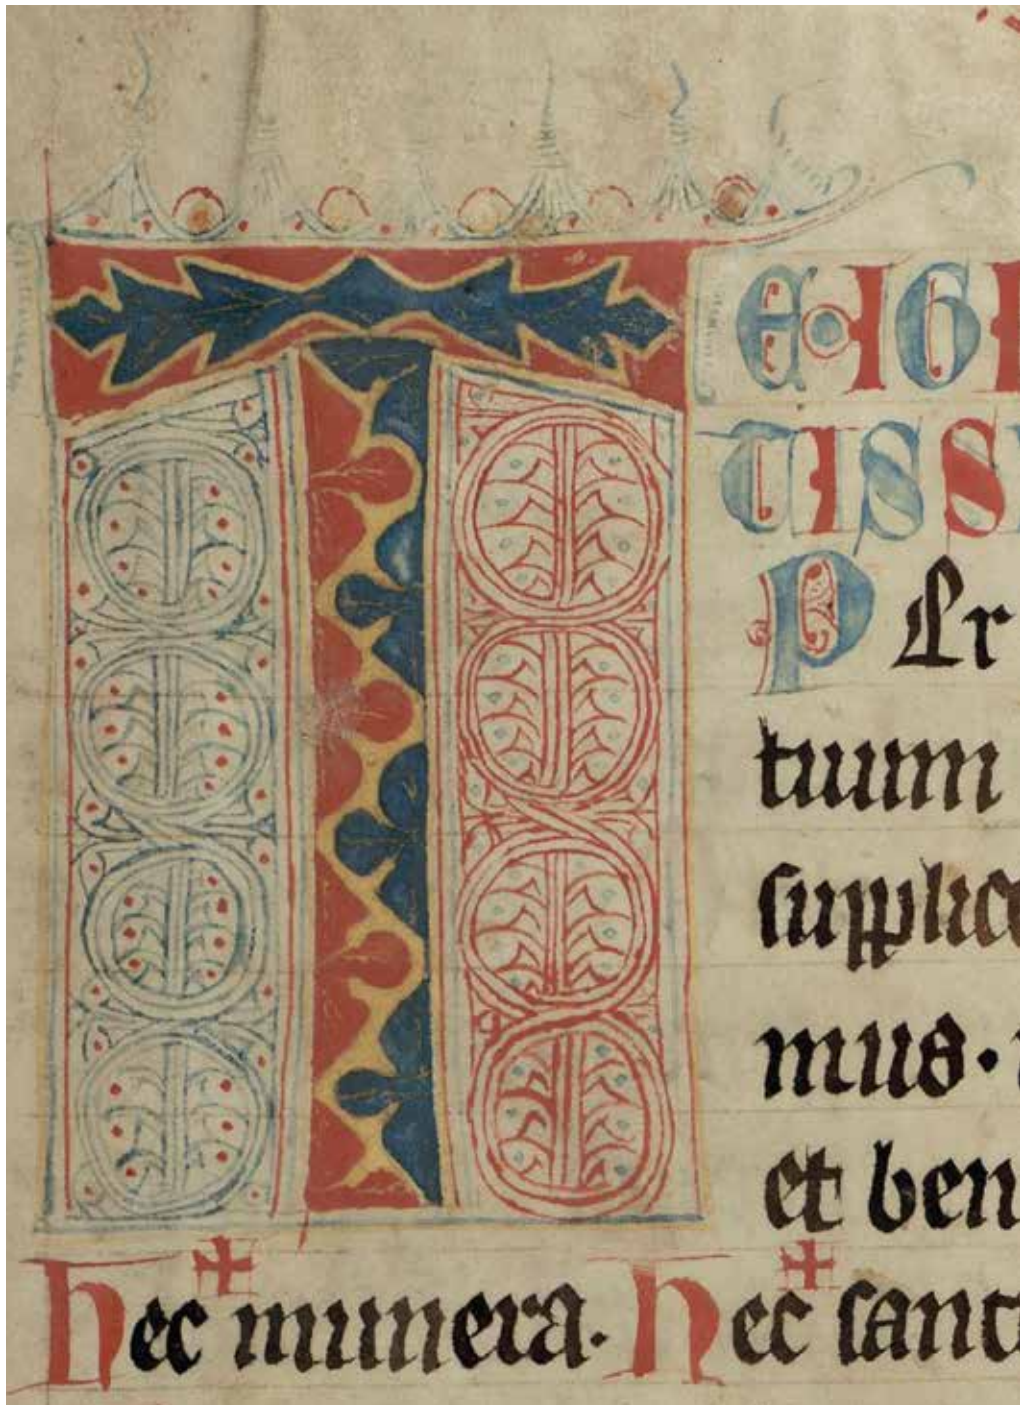 TE IGI
TISSI
P Er
tuum
supplice
mus·
et ben
hec munera. hec sanc